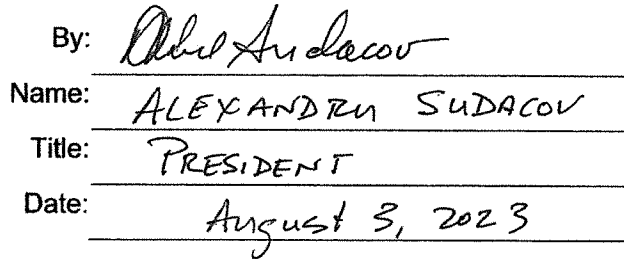 By: Sudacov
Name: ALEXANDRU SUDACOV
Title: PRESIDENT
Date: August 3, 2023